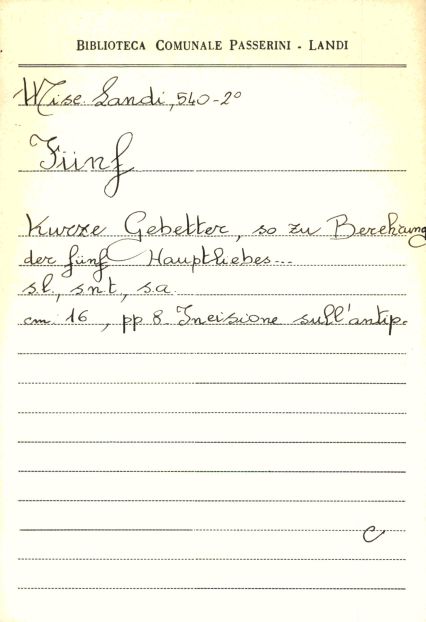 BIBLIOTECA COMUNALE PASSERINI - LANDI
Misc. Landi, 540-2º
Fünf
Kurze Gebetter, so zu Berehrung
der fünf Hauptliebes...
s.l., s.n.t., s.a.
cm. 16, pp 8. Incisione sull'antip.
C